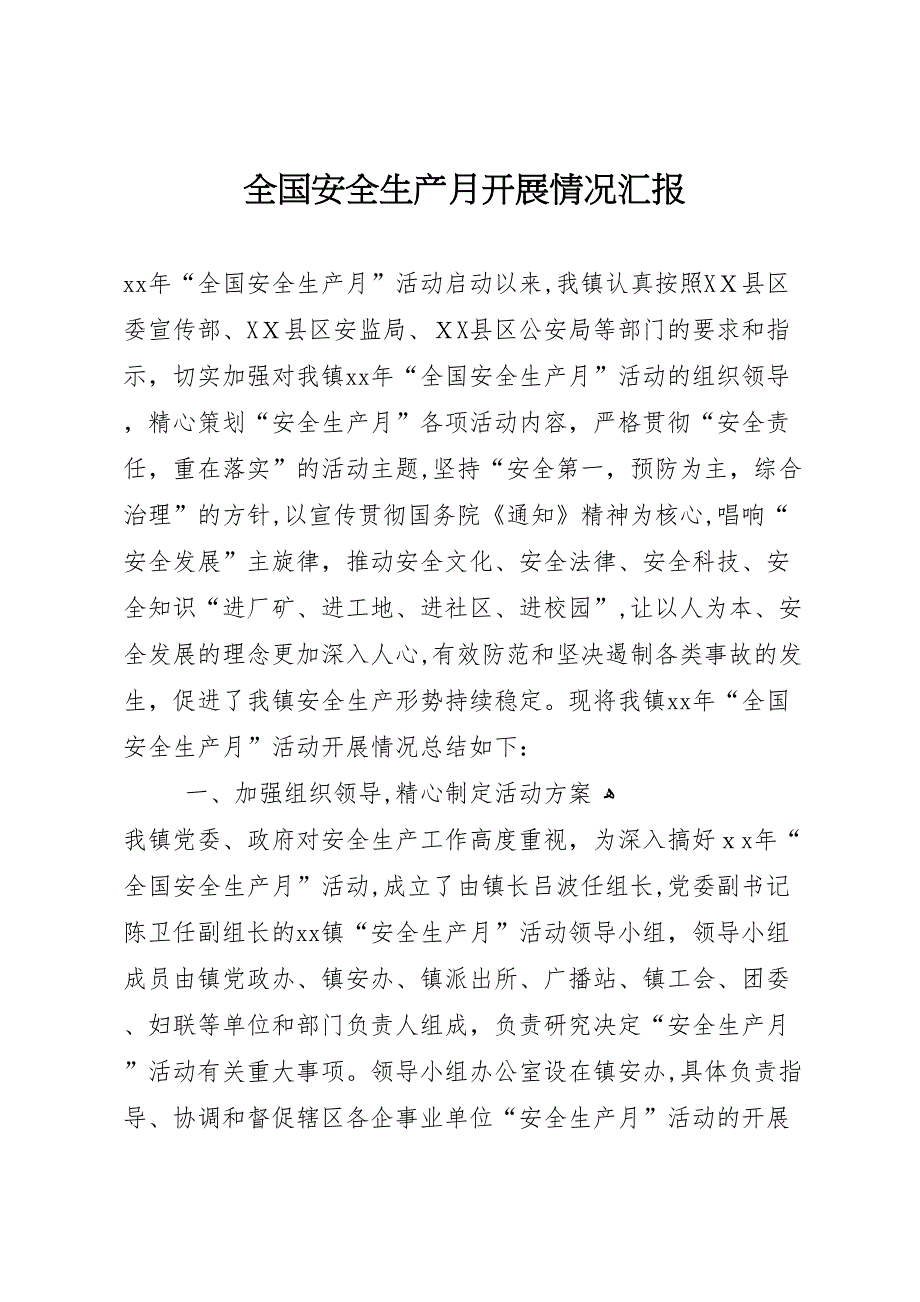 全国安全生产月开展情况汇报
xx年“全国安全生产月”活动启动以来,我镇认真按照XＸ县区
委宣传部、XＸ县区安监局、ＸX县区公安局等部门的要求和指
示，切实加强对我镇xx年“全国安全生产月”活动的组织领导
，精心策划“安全生产月”各项活动内容，严格贯彻“安全责
任，重在落实”的活动主题,坚持“安全第一，预防为主，综合
治理”的方针,以宣传贯彻国务院《通知》精神为核心,唱响“
安全发展”主旋律，推动安全文化、安全法律、安全科技、安
全知识“进厂矿、进工地、进社区、进校园”,让以人为本、安
全发展的理念更加深入人心,有效防范和坚决遏制各类事故的发
生，促进了我镇安全生产形势持续稳定。现将我镇xx年“全国
安全生产月”活动开展情况总结如下：
一、加强组织领导,精心制定活动方案 ﻫ
我镇党委、政府对安全生产工作高度重视，为深入搞好ｘx年“
全国安全生产月”活动,成立了由镇长吕波任组长,党委副书记
陈卫任副组长的xx镇“安全生产月”活动领导小组，领导小组
成员由镇党政办、镇安办、镇派出所、广播站、镇工会、团委
、妇联等单位和部门负责人组成，负责研究决定“安全生产月
”活动有关重大事项。领导小组办公室设在镇安办,具体负责指
导、协调和督促辖区各企事业单位“安全生产月”活动的开展